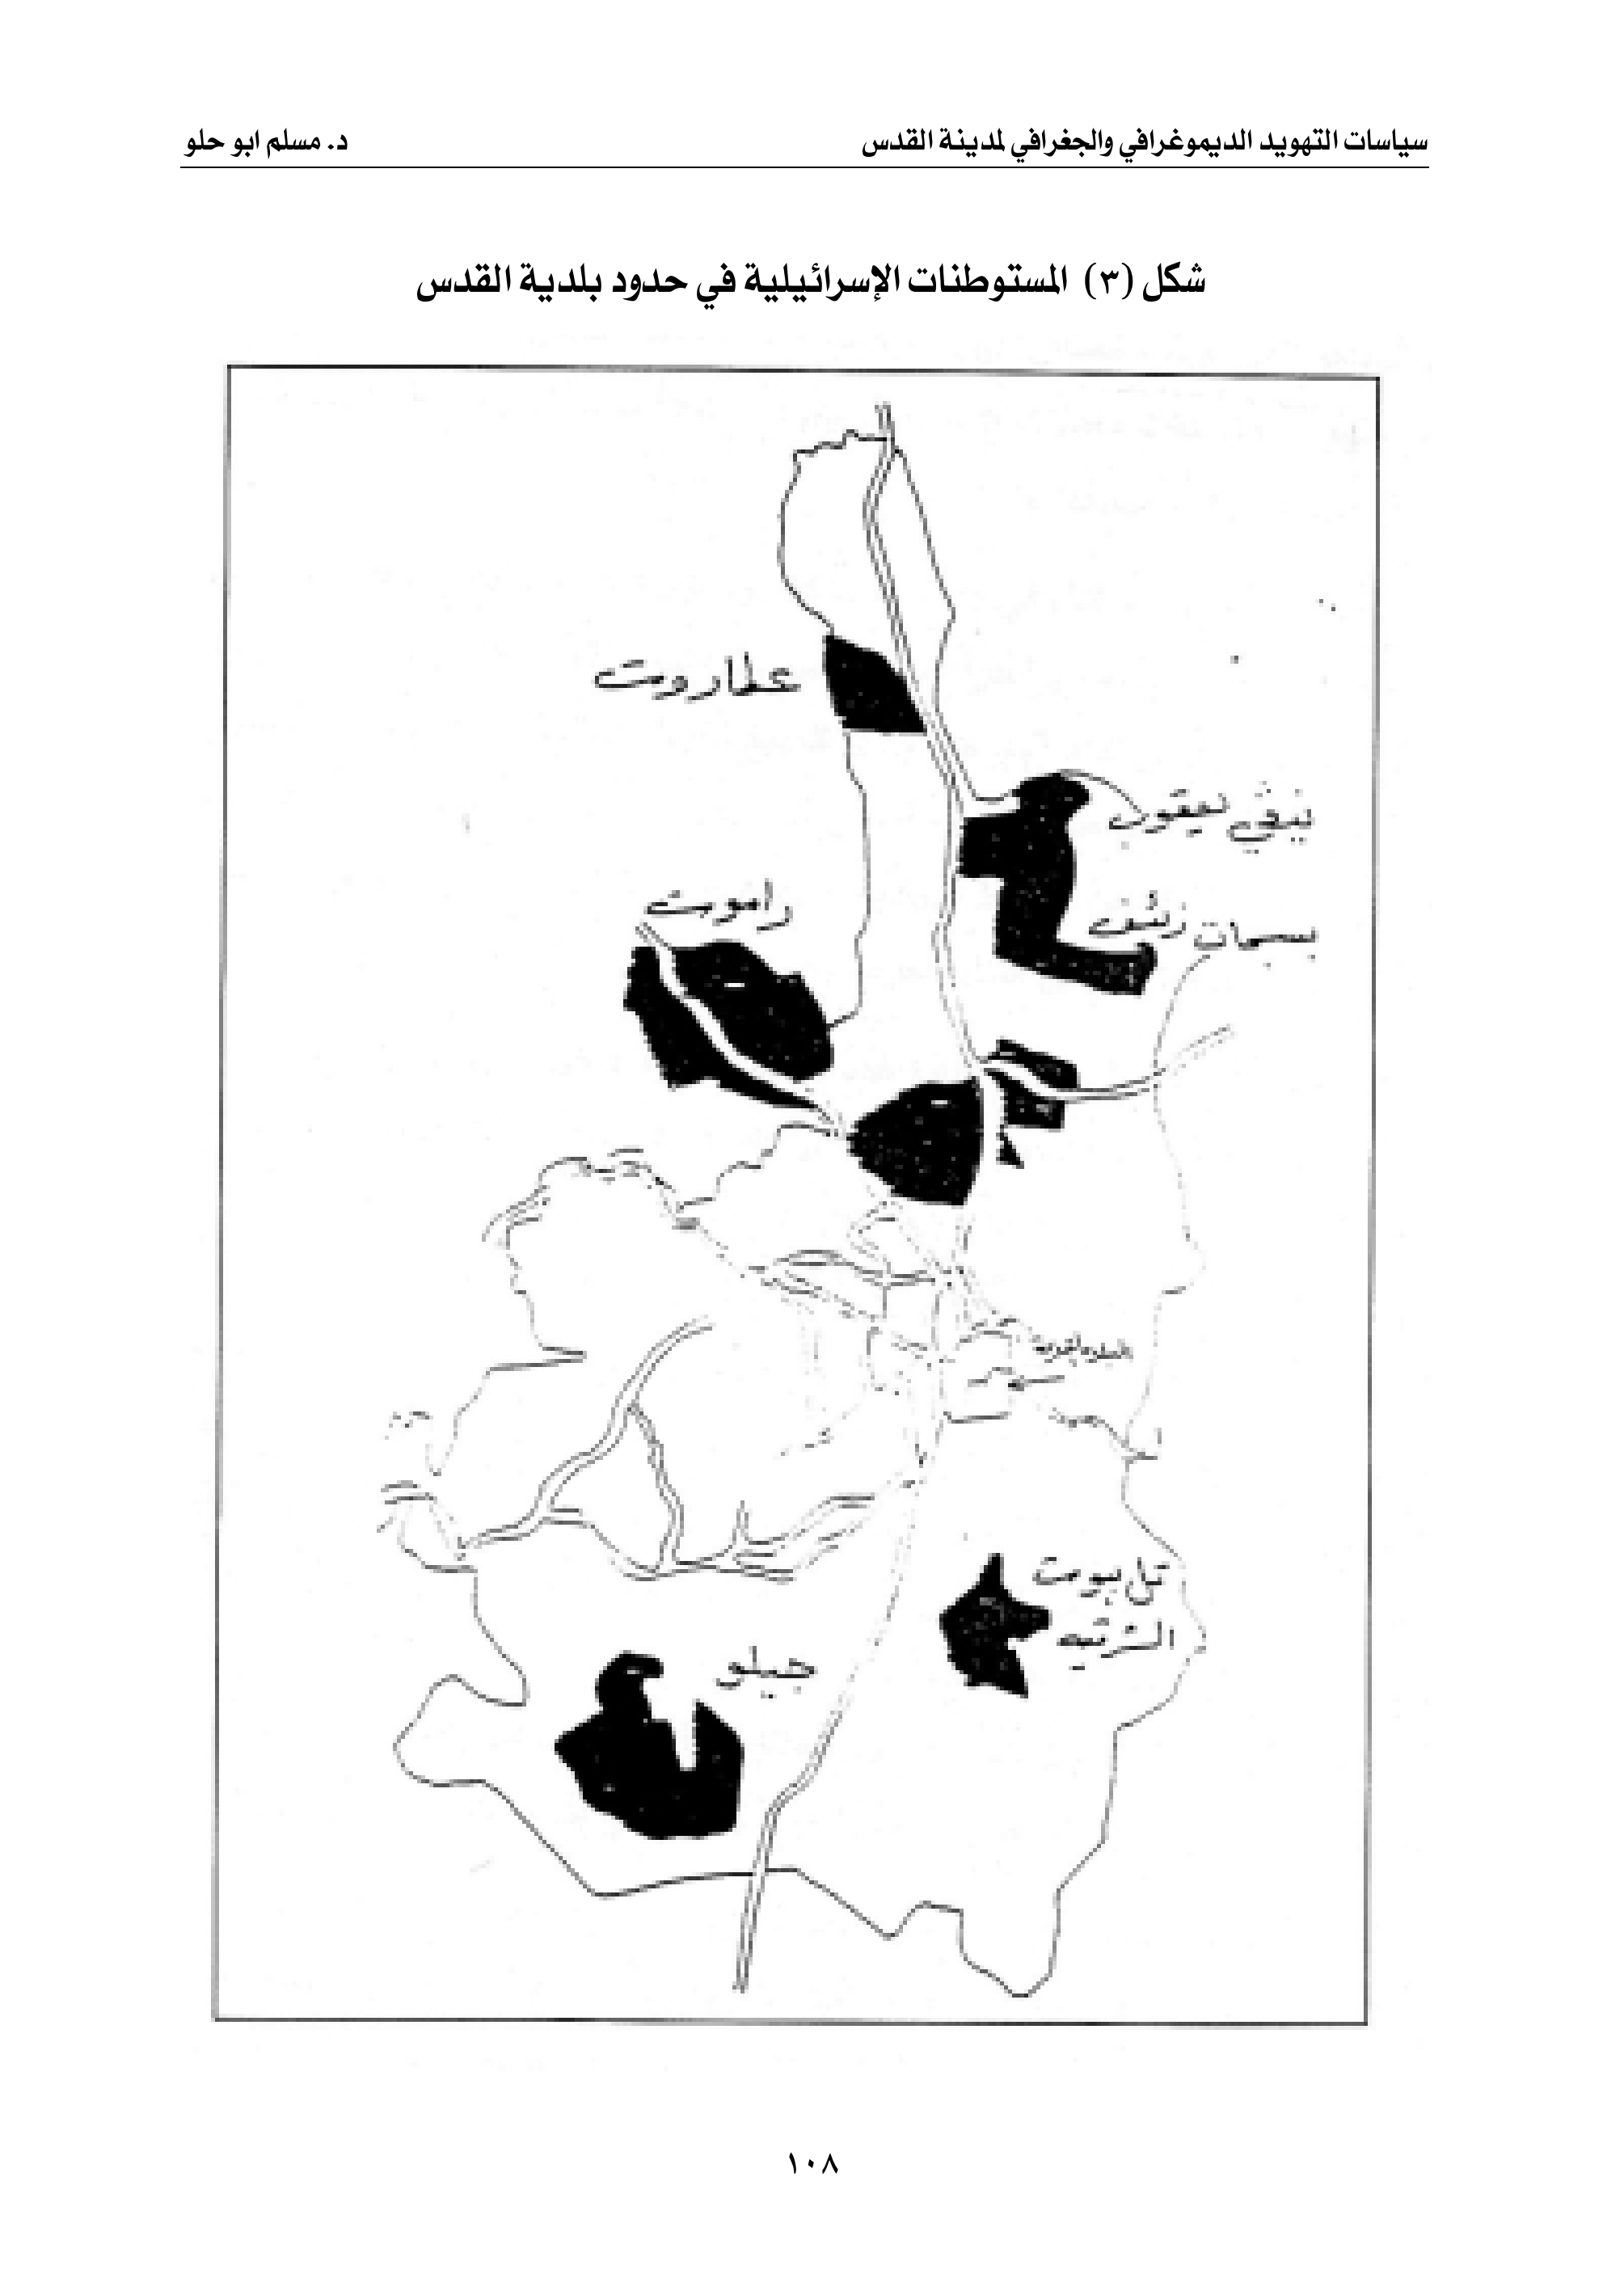 سياسات التهويد الديموغرافي والجغرافي لمدينة القدس
د. مسلم ابو حلو
شكل (٣) المستوطنات الإسرائيلية في حدود بلدية القدس
عطاروت
يعقوب
راموت
بسجات زئيف
تل بيوت
الشرقية
جيلو
١٠٨